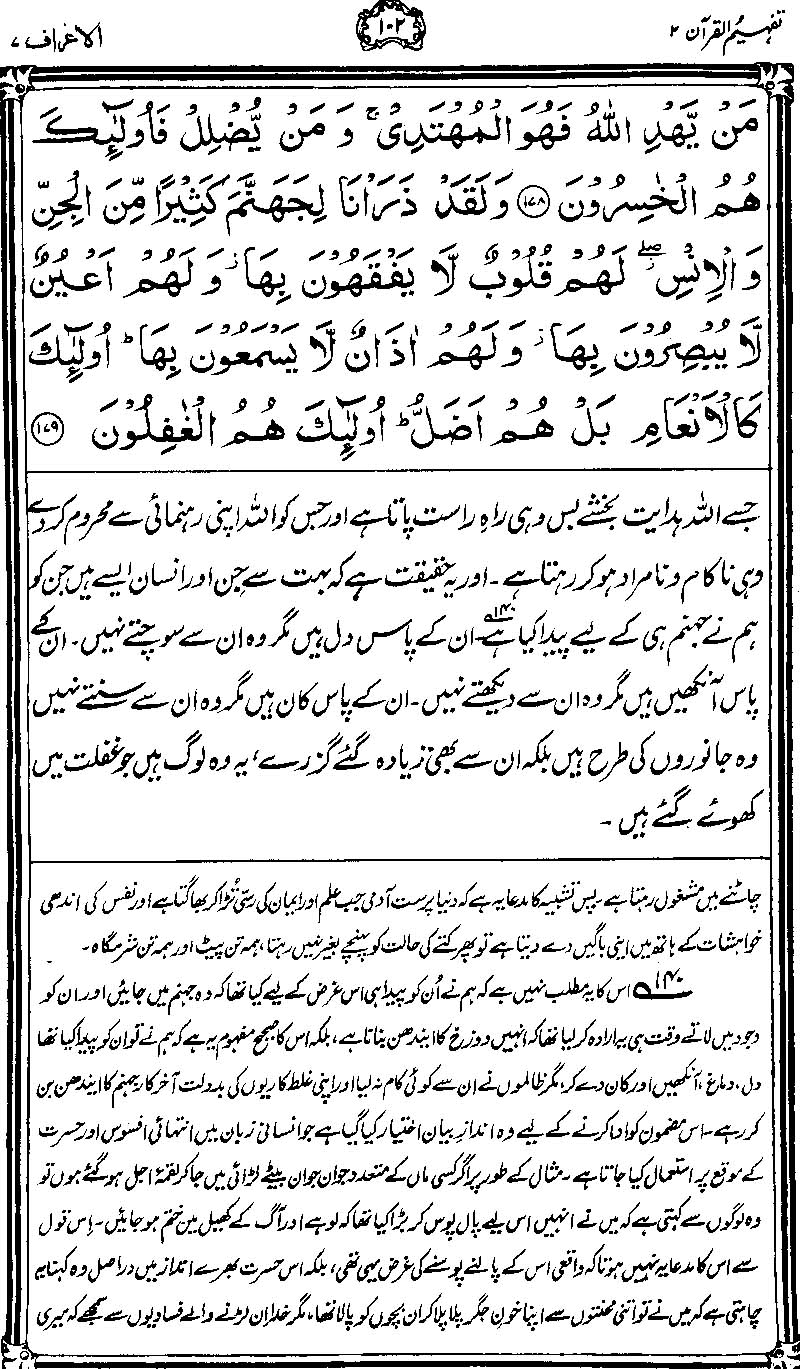 تفہیم القرآن ۲
۱۰۲
الاعراف ۷
مَنْ يَّهْدِ اللّٰهُ فَهُوَ الْمُهْتَدِىْ ۚ وَ مَنْ يُّضْلِلْ فَاُولٰٓئِكَ
هُمُ الْخٰسِرُوْنَ ﴿۱۷۸﴾ وَلَقَدْ ذَرَاْنَا لِجَهَنَّمَ كَثِيْرًا مِّنَ الْجِنِّ
وَالْاِنْسِ ۖ لَهُمْ قُلُوْبٌ لَّا يَفْقَهُوْنَ بِهَا ۫ وَلَهُمْ اَعْيُنٌ
لَّا يُبْصِرُوْنَ بِهَا ۫ وَلَهُمْ اٰذَانٌ لَّا يَسْمَعُوْنَ بِهَا ؕ اُولٰٓئِكَ
كَالْاَنْعَامِ بَلْ هُمْ اَضَلُّ ؕ اُولٰٓئِكَ هُمُ الْغٰفِلُوْنَ ﴿۱۷۹﴾
جسے اللہ ہدایت بخشے بس وہی راہِ راست پاتا ہے اور جس کو اللہ اپنی رہنمائی سے محروم کر دے
وہی ناکام و نامراد ہو کر رہتا ہے۔ اور یہ حقیقت ہے کہ بہت سے جِن اور انسان ایسے ہیں جن کو
ہم نے جہنم ہی کے لیے پیدا کیا ہے۱۴۰۔ ان کے پاس دل ہیں مگر وہ ان سے سوچتے نہیں۔ ان کے
پاس آنکھیں ہیں مگر وہ ان سے دیکھتے نہیں۔ ان کے پاس کان ہیں مگر وہ ان سے سنتے نہیں۔
وہ جانوروں کی طرح ہیں بلکہ ان سے بھی زیادہ گئے گزرے، یہ وہ لوگ ہیں جو غفلت میں
کھوئے گئے ہیں۔
چاٹنے میں مشغول رہتا ہے۔ پس تشبیہ کا مدعا یہ ہے کہ دنیا پرست آدمی جب علم اور ایمان کی رسّی تڑا کر بھاگتا ہے اور نفس کی اندھی
خواہشات کے ہاتھ میں اپنی باگیں دے دیتا ہے تو پھر کتے کی حالت کو پہنچے بغیر نہیں رہتا، ہمہ تن پیٹ اور ہمہ تن شرمگاہ۔
۱۴۰ اس کا یہ مطلب نہیں ہے کہ ہم نے اُن کو پیدا ہی اس غرض کے لیے کیا تھا کہ وہ جہنم میں جائیں اور ان کو
وجود میں لاتے وقت ہی یہ ارادہ کر لیا تھا کہ انہیں دوزخ کا ایندھن بنانا ہے، بلکہ اس کا صحیح مفہوم یہ ہے کہ ہم نے تو ان کو پیدا کیا تھا
دل، دماغ، آنکھیں اور کان دے کر، مگر ظالموں نے ان سے کوئی کام نہ لیا اور اپنی غلط کاریوں کی بدولت آخر کار جہنم کا ایندھن بن
کر رہے۔ اس مضمون کو ادا کرنے کے لیے وہ اندازِ بیان اختیار کیا گیا ہے جو انسانی زبان میں انتہائی افسوس اور حسرت
کے موقع پر استعمال کیا جاتا ہے۔ مثال کے طور پر اگر کسی ماں کے متعدد جوان جوان بیٹے لڑائی میں جا کر لقمۂ اجل ہو گئے ہوں تو
وہ لوگوں سے کہتی ہے کہ میں نے انہیں اس لیے پال پوس کر بڑا کیا تھا کہ لوہے اور آگ کے کھیل میں ختم ہو جائیں۔ اِس قول
سے اس کا مدعا یہ نہیں ہوتا کہ واقعی اس کے پالنے پوسنے کی غرض یہی تھی، بلکہ اس حسرت بھرے انداز میں دراصل وہ کہنا یہ
چاہتی ہے کہ میں نے تو اتنی محنتوں سے اپنا خونِ جگر پلا پلا کر ان بچوں کو پالا تھا، مگر خدا ان لڑنے والے فسادیوں سے سمجھے کہ میری